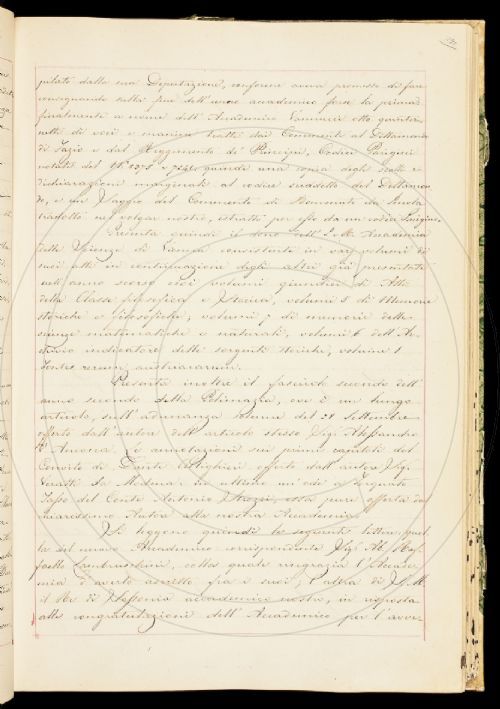 pilato dalla sua Deputazione, conforme aveva promesso di fare
consegnando sulla fine dell'anno accademico forse la prima
finalmente a nome dell'Accademico Vannucci otto quinter-
netti di voci e maniere tratte dai Commenti al Dittamondo
di Fazio e dal Reggimento de' Principi, Codici Parigini
notati del N.° 1078 e quindi una copia degli scritti e
dichiarazioni marginali al codice suddetto del Dittamon-
do, e un Saggio del Commento di Benvenuto da Imola
tradotto nel volgar nostro, estratti per esso da un codice Parigino.
Presenta quindi il dono dell'I. R. Accademia
delle Scienze di Vienna consistente in vari volumi di
suoi atti in continuazione degli altri già presentati
nell'anno scorso cioè volumi quindici di Atti
della Classe filosofica e Storica, volumi 3 di Memorie
storiche e filosofiche, volumi 7 di memorie delle
scienze matematiche e naturali, volumi 6 dell'Ar-
chivio indicatore delle sorgenti storiche, volume 1
Fontes rerum austriacarum.
Presenta inoltre il fascicolo secondo dell'
anno secondo della Polimazia, ove è un lungo
articolo, sull'adunanza solenne del 21 Settembre
offerto dall'autore dell'articolo stesso Sig.r Alessandro
D'Ancona, e annotazioni sui primi capitoli del
Convito di Dante Allighieri offerto dall'autore Sig.
da Modena: ed ultimo un'ode a Torquato
Tasso del Conte Antonio essa pure offerta dal
chiarissimo Autore alla nostra Accademia.
Si leggono quindi le seguenti lettere, quel-
la del nuovo Accademico corrispondente Sig.r Ab. Raf-
faello Lambruschini, colla quale ringrazia l'Accade-
mia d'averlo ascritto fra i suoi, l'altra di S. M.
il Re di Sassonia accademico nostro, in risposta
alle congratulazioni dell'Accademia per l'avve-